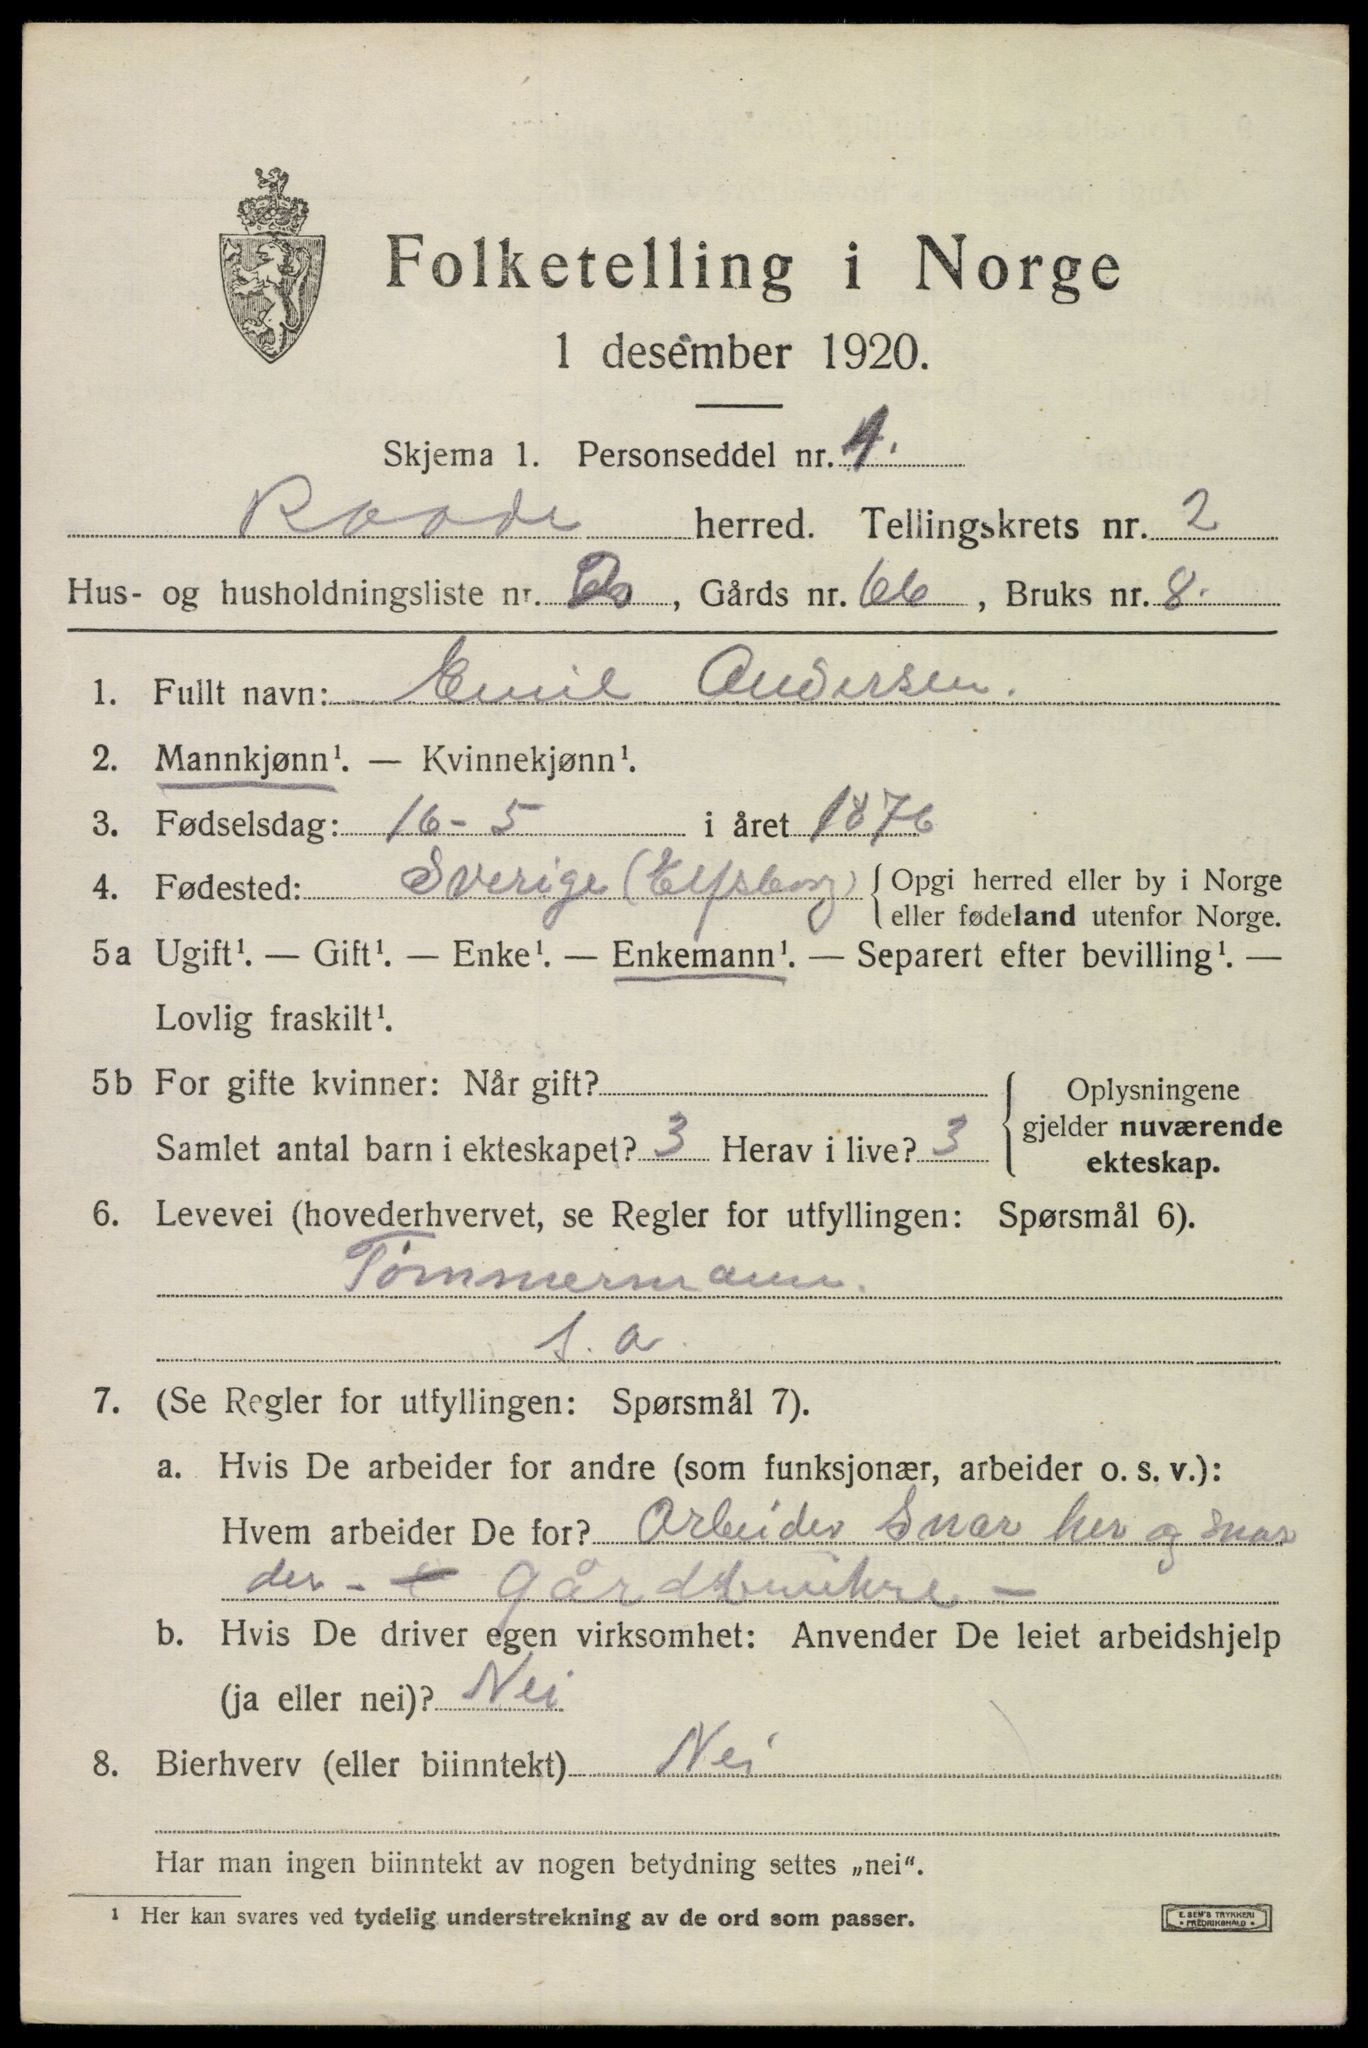 Folketelling i Norge
1 desember 1920.
Skjema 1. Personseddel nr. 1.
Raade herred. Tellingskrets nr. 2
Hus- og husholdningsliste nr. , Gårds nr. 66, Bruks nr. 8.
1. Fullt navn: Emil Andersen.
2. Mannkjønn¹. — Kvinnekjønn¹.
3. Fødselsdag: 16-5 i året 1876
4. Fødested: Sverige (Elfsborg) { Opgi herred eller by i Norge
eller fødeland utenfor Norge.
5a Ugift¹. — Gift¹. — Enke¹. — Enkemann¹. — Separert efter bevilling¹. —
Lovlig fraskilt¹.
5b For gifte kvinner: Når gift?
Samlet antal barn i ekteskapet? 3 Herav i live? 3
Oplysningene
gjelder nuværende
ekteskap.
6. Levevei (hovederhvervet, se Regler for utfyllingen: Spørsmål 6).
Tømmermann.
s. a
7. (Se Regler for utfyllingen: Spørsmål 7).
a. Hvis De arbeider for andre (som funksjonær, arbeider o. s. v.):
Hvem arbeider De for? Arbeider snar her og snar
der - gårdbrukere -
b. Hvis De driver egen virksomhet: Anvender De leiet arbeidshjelp
(ja eller nei)? Nei
8. Bierhverv (eller biinntekt) Nei
Har man ingen biinntekt av nogen betydning settes „nei“.
¹ Her kan svares ved tydelig understrekning av de ord som passer.
E. SEM'S TRYKKERI
* FREDRIKSHALD *